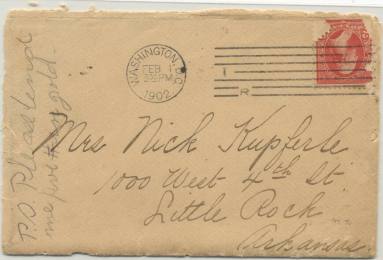 WASHINGTON, D.C.
FEB 1
1902
R
Mrs Nick Kupferle
1000 West 4th St
Little Rock
Arkansas
P.O. Please send
me